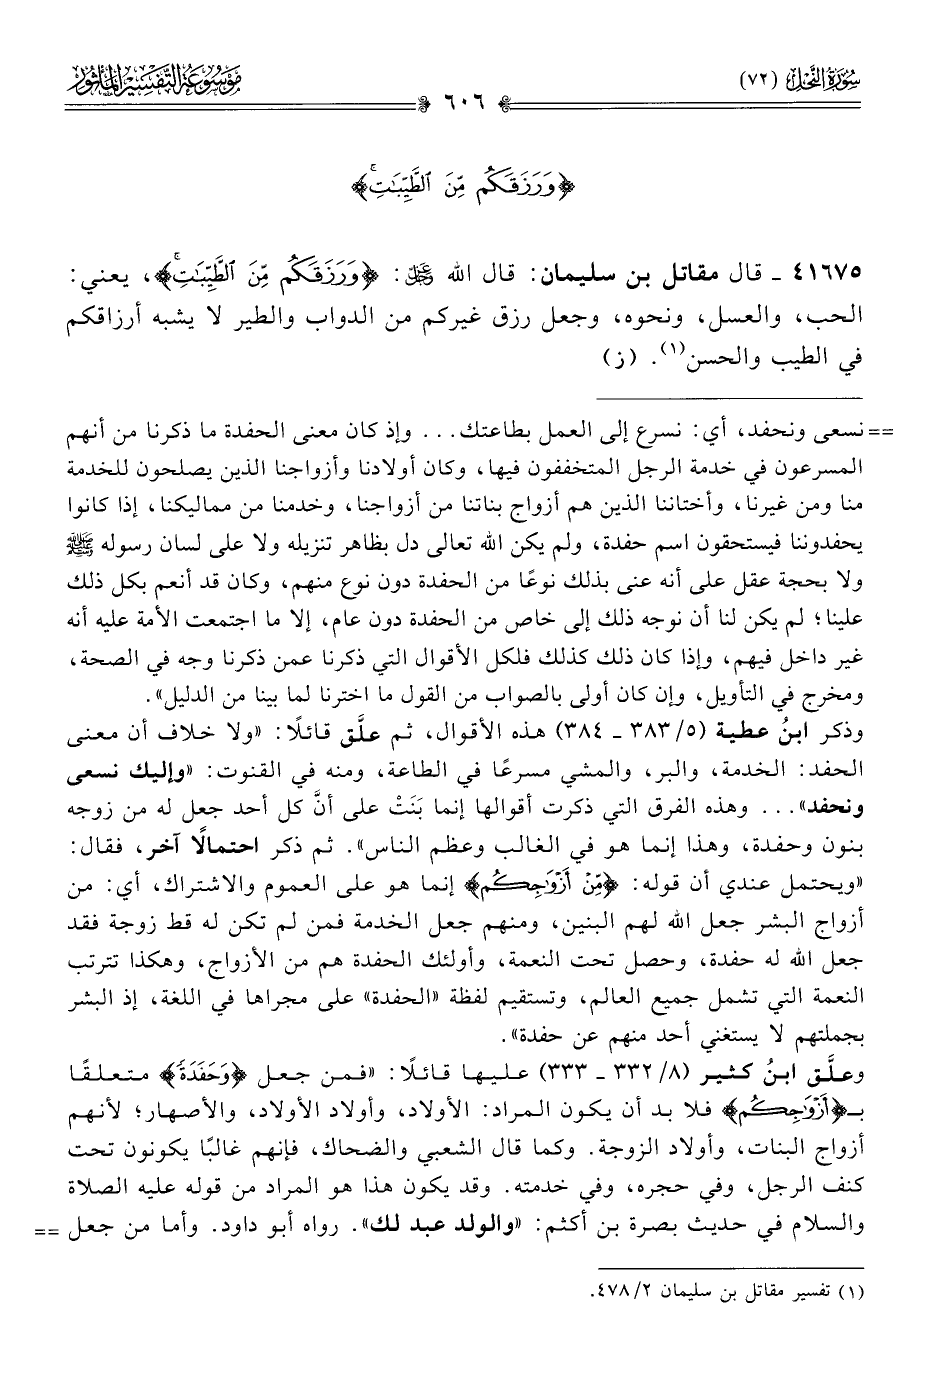 سورة النحل (٧٢)
٦٠٦
موسوعة التفسير المأثور
﴿وَرَزَقَكُم مِّنَ ٱلطَّيِّبَٰتِۚ﴾
٤١٦٧٥ ـ قال مقاتل بن سليمان: قال الله ﷿: ﴿وَرَزَقَكُم مِّنَ ٱلطَّيِّبَٰتِۚ﴾، يعني:
الحب، والعسل، ونحوه، وجعل رزق غيركم من الدواب والطير لا يشبه أرزاقكم
في الطيب والحسن(١). (ز)
== نسعى ونحفد، أي: نسرع إلى العمل بطاعتك... وإذ كان معنى الحفدة ما ذكرنا من أنهم
المسرعون في خدمة الرجل المتخففون فيها، وكان أولادنا وأزواجنا الذين يصلحون للخدمة
منا ومن غيرنا، وأختاننا الذين هم أزواج بناتنا من أزواجنا، وخدمنا من مماليكنا، إذا كانوا
يحفدوننا فيستحقون اسم حفدة، ولم يكن الله تعالى دل بظاهر تنزيله ولا على لسان رسوله ﷺ
ولا بحجة عقل على أنه عنى بذلك نوعًا من الحفدة دون نوع منهم، وكان قد أنعم بكل ذلك
علينا؛ لم يكن لنا أن نوجه ذلك إلى خاص من الحفدة دون عام، إلا ما اجتمعت الأمة عليه أنه
غير داخل فيهم، وإذا كان ذلك كذلك فلكل الأقوال التي ذكرنا عمن ذكرنا وجه في الصحة،
ومخرج في التأويل، وإن كان أولى بالصواب من القول ما اخترنا لما بينا من الدليل».
وذكر ابنُ عطية (٥/ ٣٨٣ ـ ٣٨٤) هذه الأقوال، ثم علَّق قائلًا: «ولا خلاف أن معنى
الحفد: الخدمة، والبر، والمشي مسرعًا في الطاعة، ومنه في القنوت: «وإليك نسعى
ونحفد»... وهذه الفرق التي ذكرت أقوالها إنما بَنَتْ على أنَّ كل أحد جعل له من زوجه
بنون وحفدة، وهذا إنما هو في الغالب وعظم الناس». ثم ذكر احتمالًا آخر، فقال:
«ويحتمل عندي أن قوله: ﴿مِّنْ أَزْوَٰجِكُم﴾ إنما هو على العموم والاشتراك، أي: من
أزواج البشر جعل الله لهم البنين، ومنهم جعل الخدمة فمن لم تكن له قط زوجة فقد
جعل الله له حفدة، وحصل تحت النعمة، وأولئك الحفدة هم من الأزواج، وهكذا تترتب
النعمة التي تشمل جميع العالم، وتستقيم لفظة «الحفدة» على مجراها في اللغة، إذ البشر
بجملتهم لا يستغني أحد منهم عن حفدة».
وعلَّق ابنُ كثير (٨/ ٣٣٢ ـ ٣٣٣) عليها قائلًا: «فمن جعل ﴿وَحَفَدَةً﴾ متعلقًا
بـ﴿أَزْوَٰجِكُم﴾ فلا بد أن يكون المراد: الأولاد، وأولاد الأولاد، والأصهار؛ لأنهم
أزواج البنات، وأولاد الزوجة. وكما قال الشعبي والضحاك، فإنهم غالبًا يكونون تحت
كنف الرجل، وفي حجره، وفي خدمته. وقد يكون هذا هو المراد من قوله عليه الصلاة
والسلام في حديث بصرة بن أكثم: «والولد عبد لك». رواه أبو داود. وأما من جعل ==
(١) تفسير مقاتل بن سليمان ٢/ ٤٧٨.